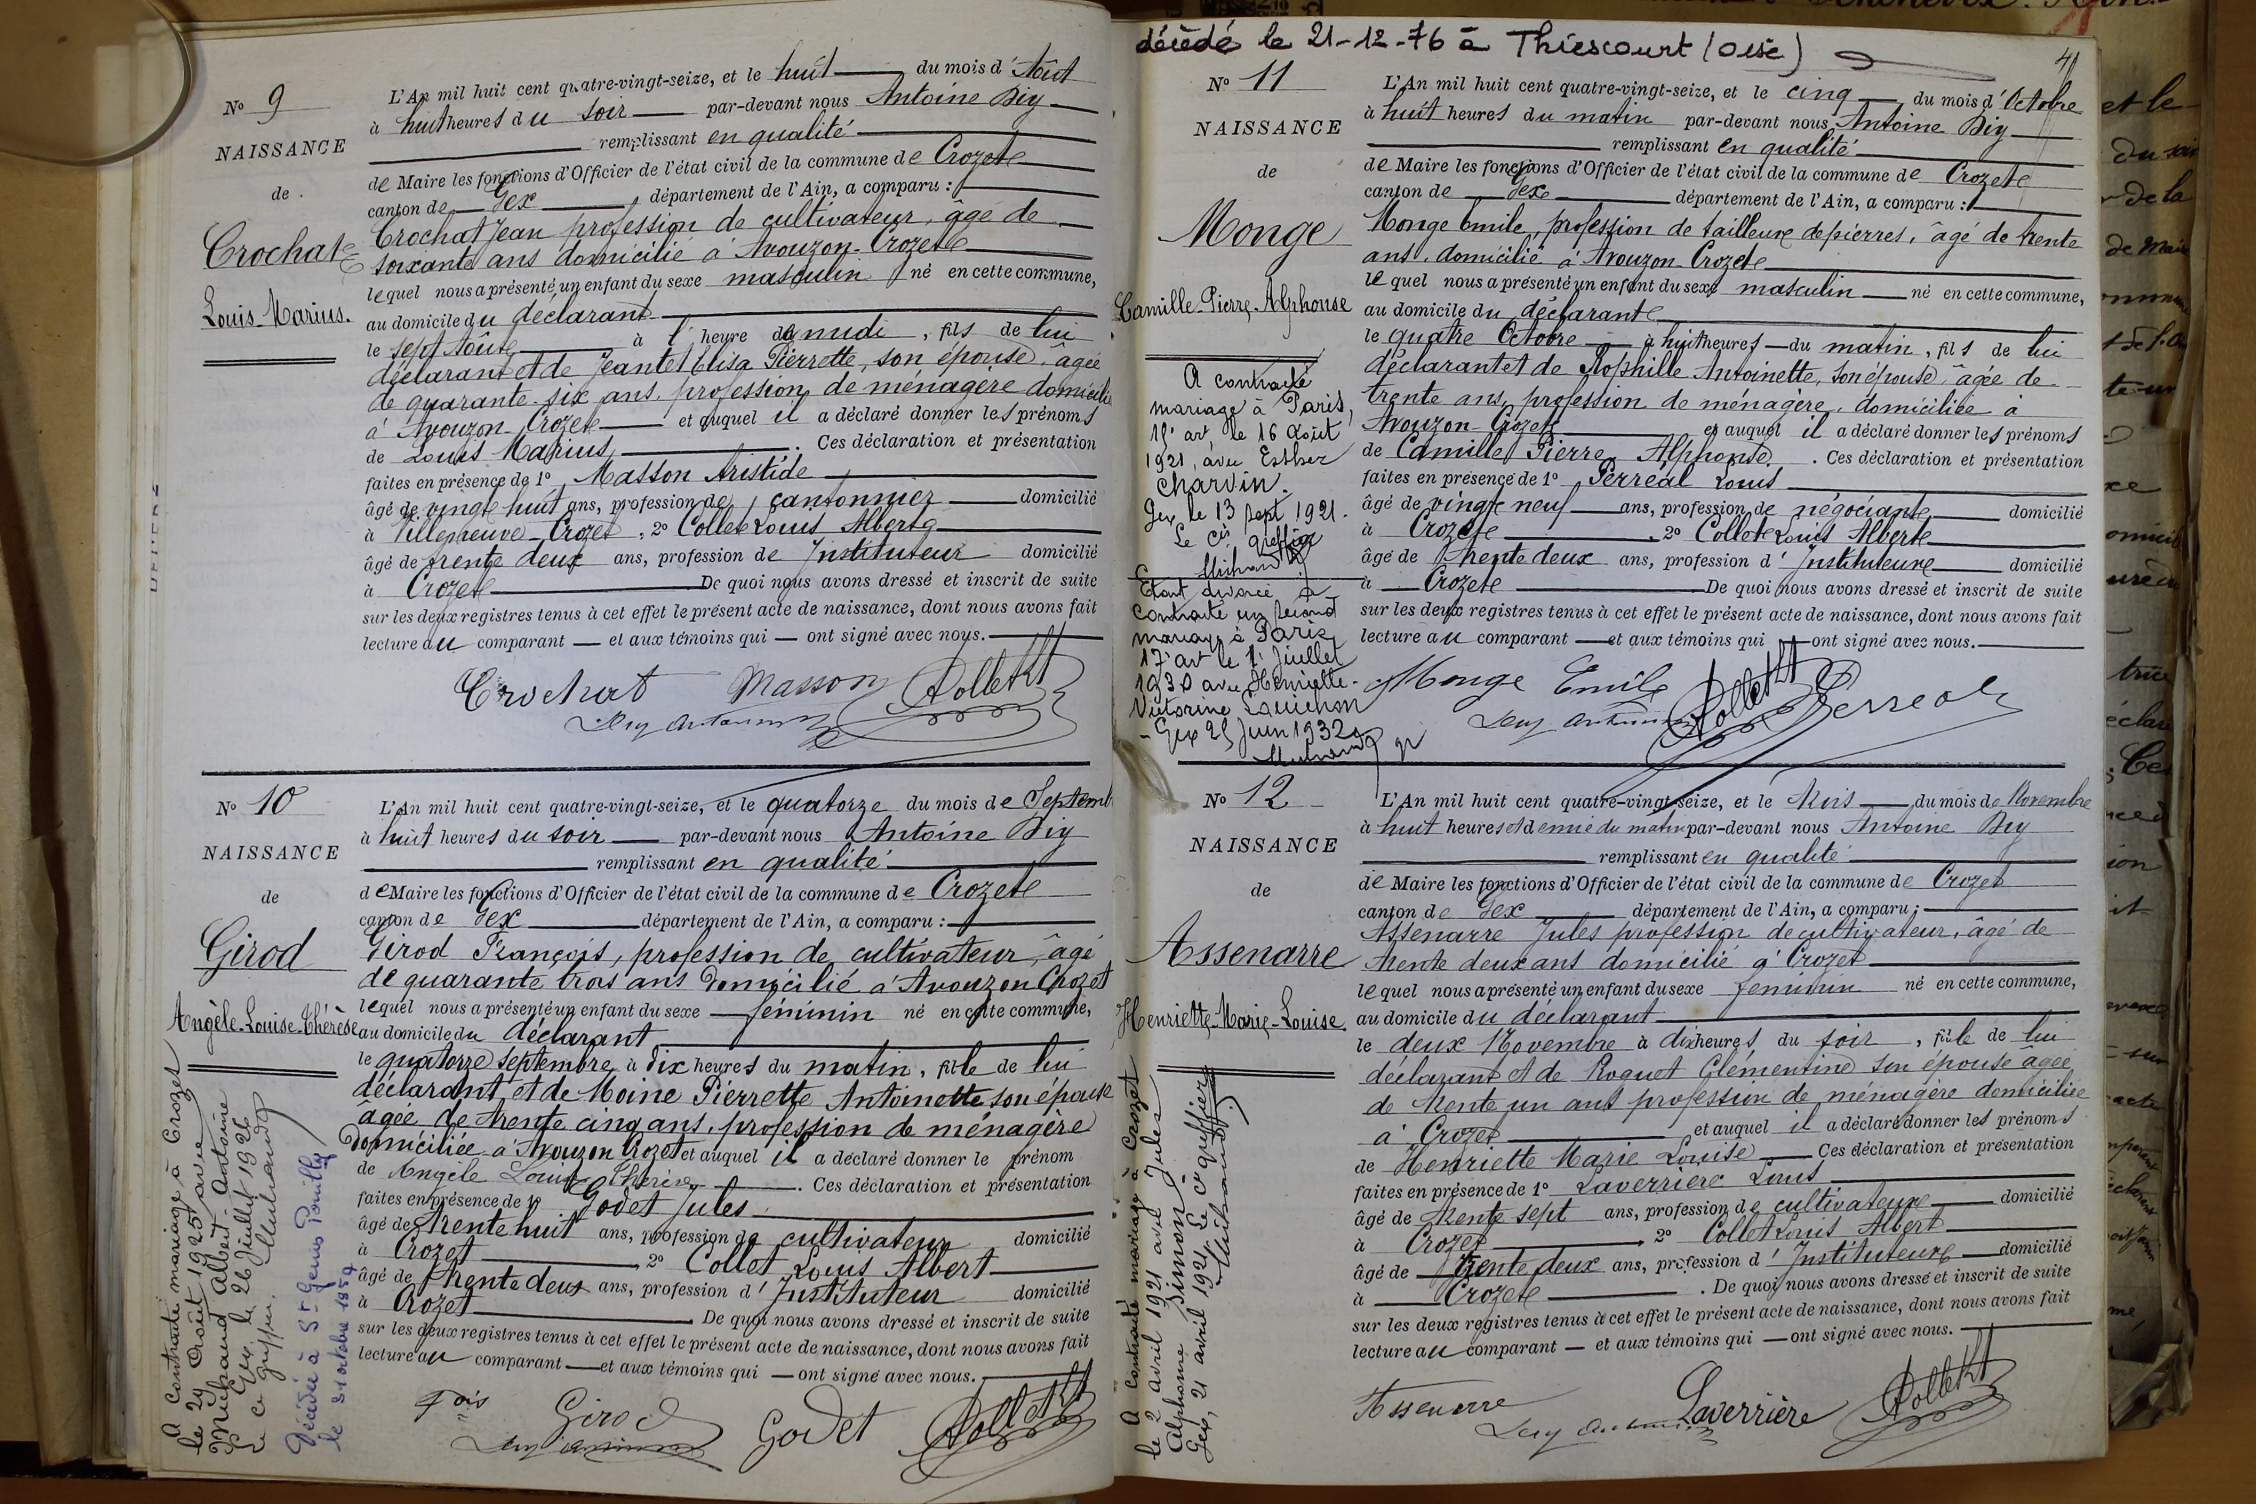 N° 9
NAISSANCE
de
Crochat
Louis-Marius.
L'An mil huit cent quatre-vingt-seize, et le huit du mois d'Août
à huit heures du soir par-devant nous Antoine Diy
remplissant en qualité
de Maire les fonctions d'Officier de l'état civil de la commune de Crozet
canton de Gex, département de l'Ain, a comparu :
Crochat Jean profession de cultivateur, âgé de
soixante ans domicilié à Avouzon-Crozet
lequel nous a présenté un enfant du sexe masculin né en cette commune,
au domicile du déclarant
le sept Août à l'heure de midi, fils de lui
déclarant et de Jeantet Elisa Pierrette, son épouse, âgée
de quarante-six ans, profession de ménagère domicilié
à Avouzon-Crozet et auquel il a déclaré donner les prénoms
de Louis Marius. Ces déclaration et présentation
faites en présence de 1° Masson Aristide
âgé de vingt huit ans, profession de cantonnier domicilié
à Villeneuve Crozet, 2° Collet Louis Albert
âgé de trente deux ans, profession de Instituteur domicilié
à Crozet De quoi nous avons dressé et inscrit de suite
sur les deux registres tenus à cet effet le présent acte de naissance, dont nous avons fait
lecture au comparant et aux témoins qui ont signé avec nous.
Crochat Masson
N° 10
NAISSANCE
de
Girod
Angèle-Louise-Thérèse
L'An mil huit cent quatre-vingt-seize, et le quatorze du mois de Septemb
à huit heures du soir par-devant nous Antoine Diy
remplissant en qualité
de Maire les fonctions d'Officier de l'état civil de la commune de Crozet
canton de Gex département de l'Ain, a comparu :
Girod François, profession de cultivateur, âgé
de quarante trois ans domicilié à Avouzon Crozet
lequel nous a présenté un enfant du sexe féminin né en cette commune,
au domicile du déclarant
le quatorze septembre à dix heures du matin, fille de lui
déclarant et de Moine Pierrette Antoinette son épouse
âgée de trente cinq ans, profession de ménagère
domiciliée à Avouzon Crozet et auquel il a déclaré donner le prénom
de Angèle Louise Thérèse. Ces déclaration et présentation
faites en présence de 1° Godet Jules
âgé de trente huit ans, profession de cultivateur domicilié
à Crozet 2° Collet Louis Albert
âgé de trente deux ans, profession d'Instituteur domicilié
à Crozet. De quoi nous avons dressé et inscrit de suite
sur les deux registres tenus à cet effet le présent acte de naissance, dont nous avons fait
lecture au comparant et aux témoins qui ont signé avec nous.
Girod Godet
A contracté mariage à Crozet
le 29 Août 1925 avec
Michaud Albert-Antoine
Gex, le 26 Juillet 1926
Le
Décédée à St-Genis Pouilly
le 31 octobre 1959
décédé le 21-12-76 à Thiescourt (Oise)
41
N° 11
NAISSANCE
de
Monge
Camille-Pierre-Alphonse
A contracté
mariage à Paris,
le 16 Août
1921, avec Esther
Charvin.
Gex le 13 sept 1921.
Le
Etant divorcé a
contracté un second
mariage à Paris
17e art le 1er Juillet
1930 avec Henriette-
Victorine
Gex 25 Juin 1932
L'An mil huit cent quatre-vingt-seize, et le cinq du mois d'Octobre
à huit heures du matin par-devant nous Antoine Diy
remplissant en qualité
de Maire les fonctions d'Officier de l'état civil de la commune de Crozet
canton de Gex département de l'Ain, a comparu :
Monge Emile, profession de tailleur de pierres, âgé de trente
ans, domicilié à Avouzon Crozet
lequel nous a présenté un enfant du sexe masculin né en cette commune,
au domicile du déclarant
le quatre Octobre à huit heures du matin, fils de lui
déclarant et de Rophille Antoinette, son épouse, âgée de
trente ans, profession de ménagère, domiciliée à
Avouzon-Crozet et auquel il a déclaré donner les prénoms
de Camille Pierre Alphonse. Ces déclaration et présentation
faites en présence de 1° Perréal Louis
âgé de vingt neuf ans, profession de négociant domicilié
à Crozet. 2° Collet Louis Albert
âgé de trente deux ans, profession d'Instituteur domicilié
à Crozet De quoi nous avons dressé et inscrit de suite
sur les deux registres tenus à cet effet le présent acte de naissance, dont nous avons fait
lecture au comparant et aux témoins qui ont signé avec nous.
Monge Emile
N° 12
NAISSANCE
de
Assenarre
Henriette-Marie-Louise.
L'An mil huit cent quatre-vingt-seize, et le trois du mois de Novembre
à huit heures et demie du matin par-devant nous Antoine Diy
remplissant en qualité
de Maire les fonctions d'Officier de l'état civil de la commune de Crozet
canton de Gex département de l'Ain, a comparu :
Assenarre Jules profession de cultivateur, âgé de
trente deux ans domicilié à Crozet
lequel nous a présenté un enfant du sexe féminin né en cette commune,
au domicile du déclarant
le deux Novembre à dix heures du soir, fille de lui
déclarant et de Roquet Clémentine son épouse âgée
de trente un ans profession de ménagère domiciliée
à Crozet et auquel il a déclaré donner les prénoms
de Henriette Marie Louise Ces déclaration et présentation
faites en présence de 1° Laverrière Louis
âgé de trente sept ans, profession de cultivateur domicilié
à Crozet. 2° Collet Louis Albert
âgé de trente deux ans, profession d'Instituteur domicilié
à Crozet. De quoi nous avons dressé et inscrit de suite
sur les deux registres tenus à cet effet le présent acte de naissance, dont nous avons fait
lecture au comparant et aux témoins qui ont signé avec nous.
Assenarre Laverrière
A contracté mariage à Crozet
le 2 avril 1921 avec Jules
Alphonse Simon
Gex, 21 avril 1921. Le Cs greffier